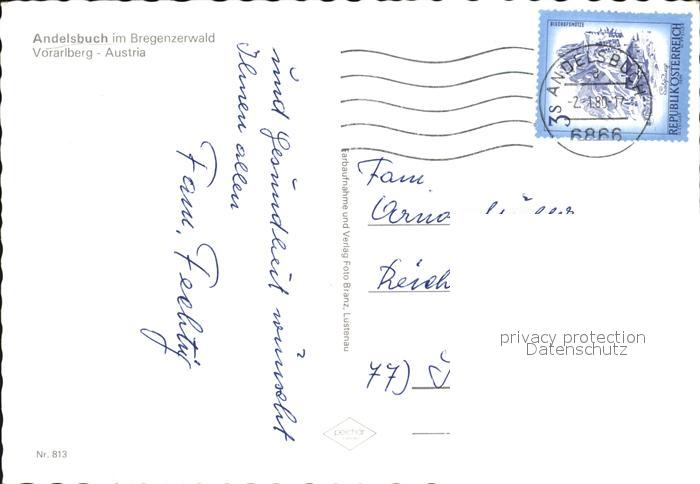 Andelsbuch im Bregenzerwald
Vorarlberg - Austria
und Gesundheit wünscht
Ihnen allen
Fam. Fechtig
Nr. 813
Farbaufnahme und Verlag Foto Branz, Lustenau
BISCHOFSMÜTZE
REPUBLIK ÖSTERREICH
S 3
ANDELSBUCH
-2.-1.80-17
6866
Fam.
Arno
Reich
77)
privacy protection
Datenschutz